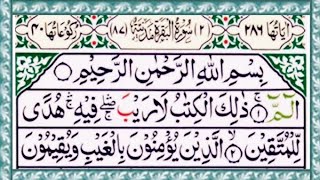 اٰيَاتُهَا ٢٨٦ (٢) سُوْرَةُ الْبَقَرَةِ مَدَنِيَّةٌ (٨٧) رُكُوْعَاتُهَا ٤٠
بِسْمِ اللّٰهِ الرَّحْمٰنِ الرَّحِيْمِ
الٓمّٓ ۚ ١ ذٰلِكَ الْكِتٰبُ لَا رَيْبَ ۛۖ فِيْهِ ۛۚ هُدًى
لِّلْمُتَّقِيْنَ ۙ ٢ الَّذِيْنَ يُؤْمِنُوْنَ بِالْغَيْبِ وَيُقِيْمُوْنَ